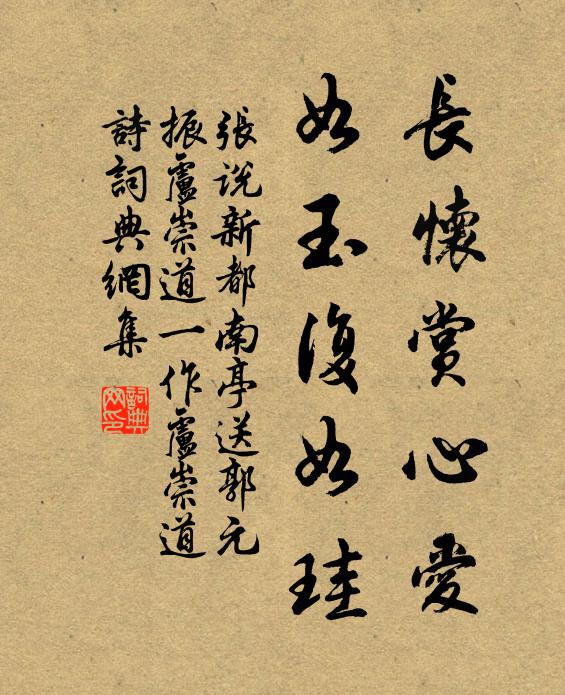 長懷賞心愛
如玉復如珪
張説新都南亭送郭元
振盧崇道一作盧崇道
詩詞典網集
詞典网印